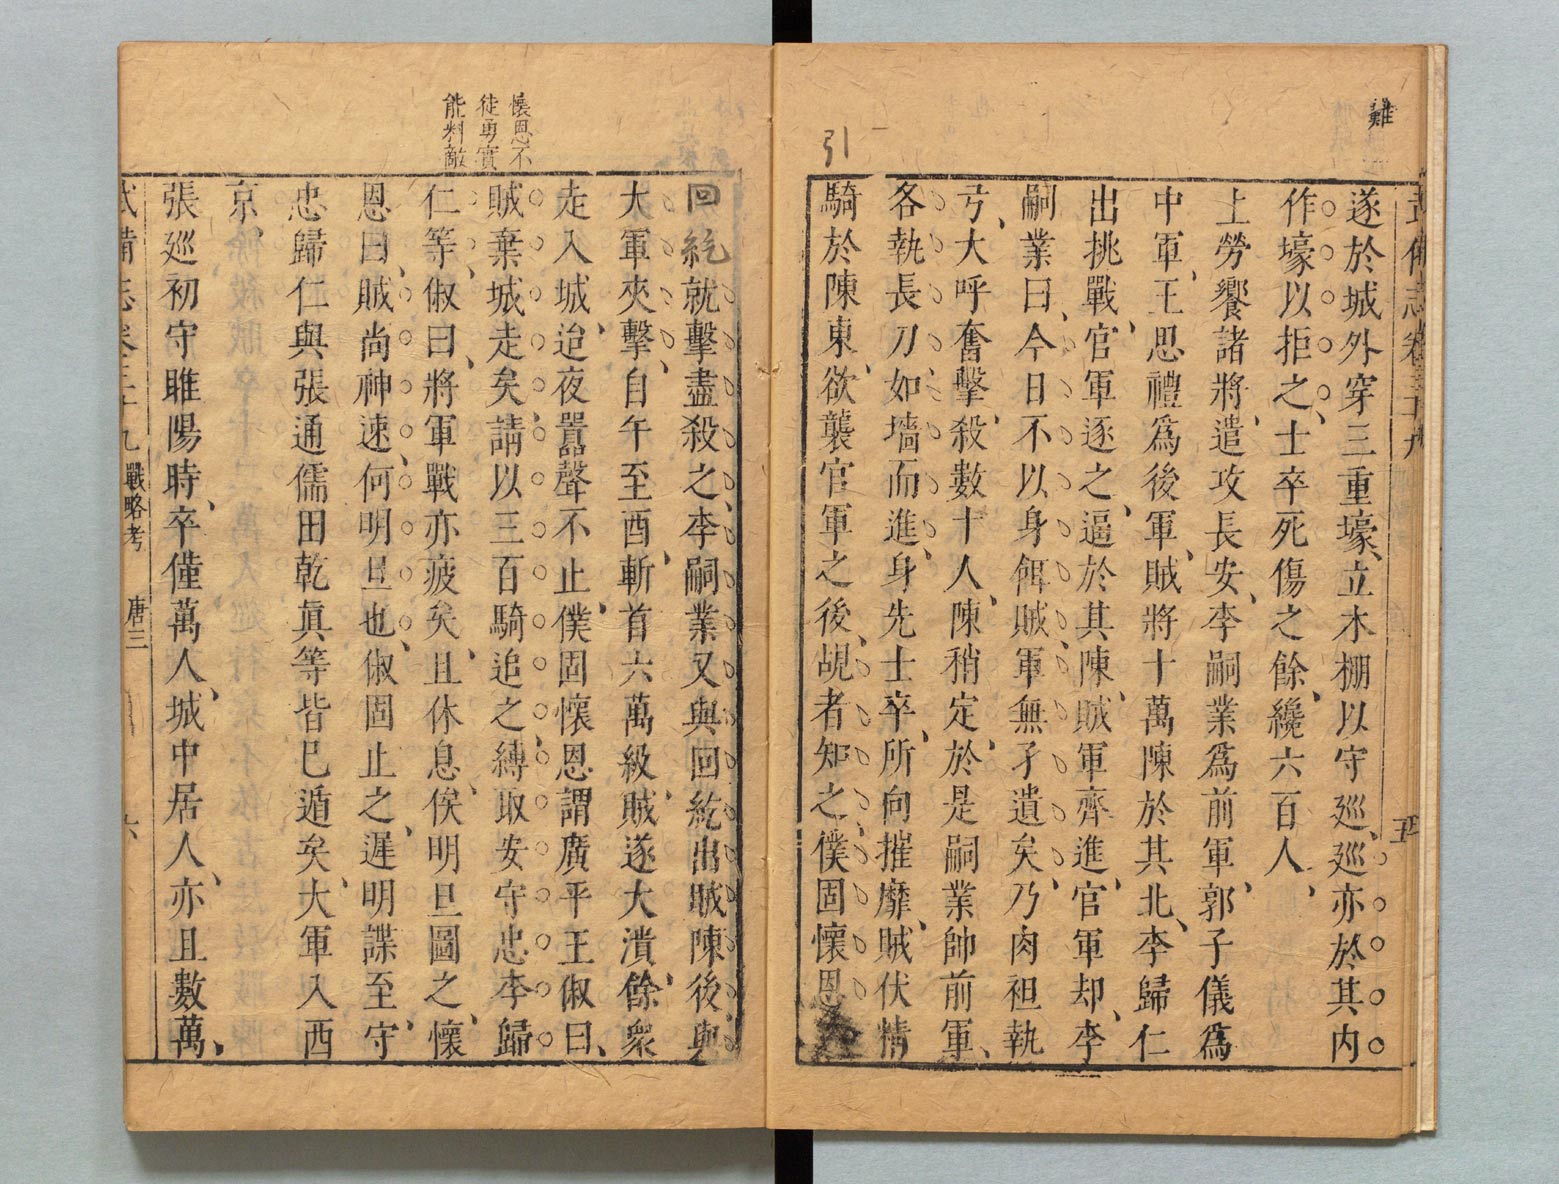 難
武備志卷三十九
五
遂於城外穿三重壕、立木栅以守巡、巡亦於其内
作壕以拒之、士卒死傷之餘、纔六百人、
上勞饗諸將、遣攻長安、李嗣業爲前軍、郭子儀爲
中軍、王思禮爲後軍、賊將十萬陳於其北、李歸仁
出挑戰、官軍逐之、逼於其陳、賊軍齊進、官軍却、李
嗣業曰、今日不以身餌賊、軍無孑遺矣、乃肉袒執
弓、大呼奮擊、殺數十人、陳稍定、於是嗣業帥前軍、
各執長刀、如墻而進、身先士卒、所向摧靡、賊伏精
騎於陳東、欲襲官軍之後、覘者知之、僕固懷恩
引
懷恩不
徒勇實
能料敵
回紇就擊盡殺之、李嗣業又與回紇出賊陳後、與
大軍夾擊、自午至酉、斬首六萬級、賊遂大潰、餘衆
走入城、迨夜囂聲不止、僕固懷恩謂廣平王俶曰、
賊棄城走矣、請以三百騎追之、縛取安守忠李歸
仁等、俶曰、將軍戰亦疲矣、且休息、俟明旦圖之、懷
恩曰、賊尚神速、何明旦也、俶固止之、遲明諜至、守
忠歸仁與張通儒田乾眞等皆已遁矣、大軍入西
京、
張巡初守睢陽時、卒僅萬人、城中居人、亦且數萬、
武備志卷三十九 戰略考 唐三 六